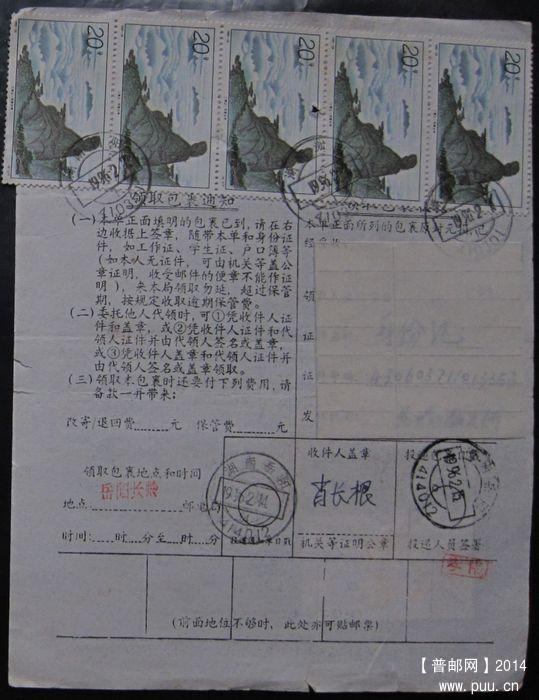 20分 20分 20分 20分 20分
领取包裹通知
(一)本单正面填明的包裹已到,请在右
边收据上签章,随带本单和身份证
件,如工作证、学生证、户口簿等
(如本人无证件,可由机关等盖公
章证明,收受邮件的便章不能作证
明),来本局领取勿延,超过保管
期,按规定收取逾期保管费。
(二)委托他人代领时,可①凭收件人证
件和盖章,或②凭收件人证件和代
领人证件并由代领人签名或盖章,
或③凭收件人盖章和代领人证件并
由代领人签名或盖章领取。
(三)领取本包裹时还要付下列费用,请
备款一并带来:
改寄/退回费 元 保管费 元
本单正面所列的包裹
领
证
发
领取包裹地点和时间
岳阳长岭
地点: 邮电局
时间: 时 分至 时 分
1996.2.14
414012
收件人盖章
肖长根
机关等证明公章
1996.2.15
投递人员签署
(前面地位不够时,此处亦可贴邮票)
【普邮网】2014
www.puu.cn